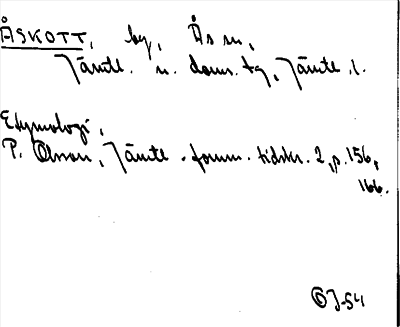 ÅSKOTT, by, Ås sn,
Jämtl. n. doms. tg, Jämtl. l.
Etymologi,
P. Olsson, Jämtl. fornm. tidskr. 2, p. 156,
166.
OJ-54